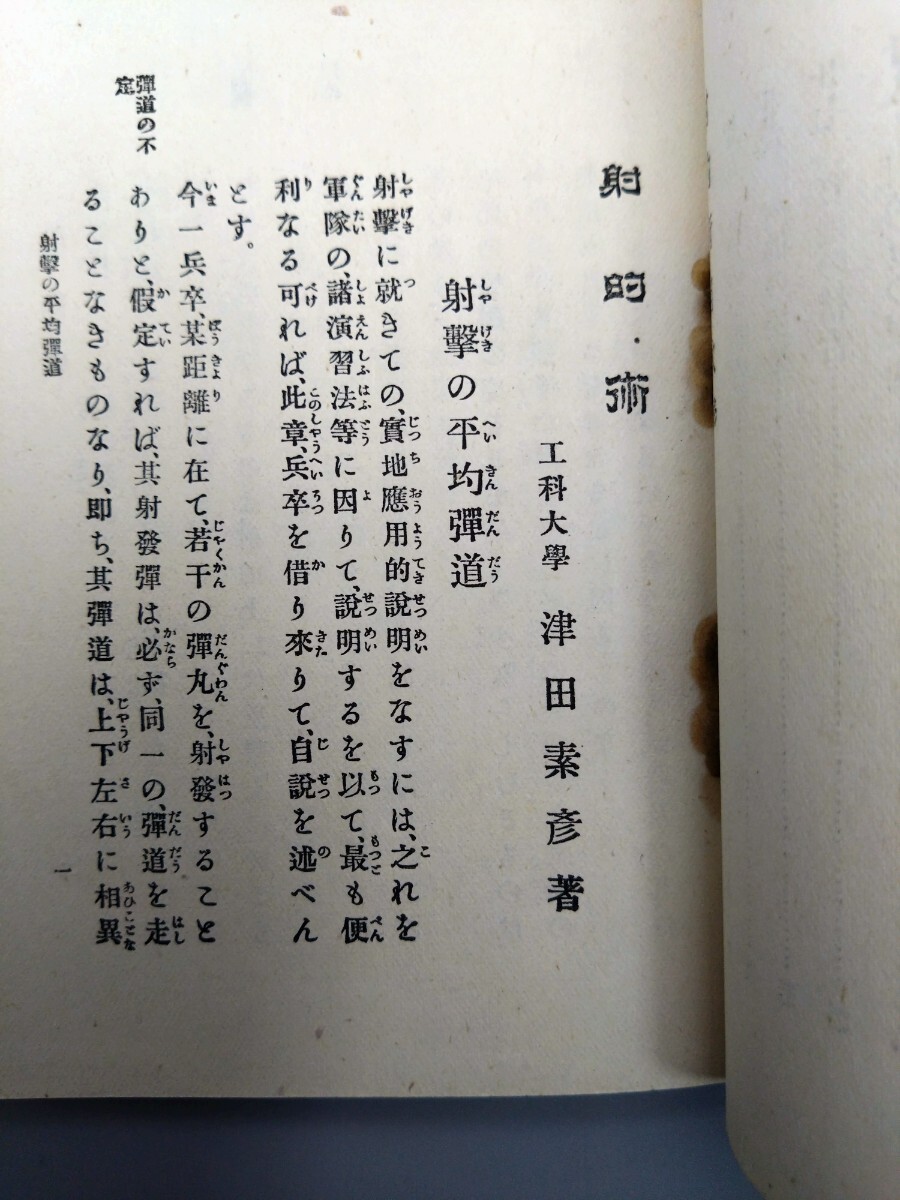 射的術
工科大學 津田素彦著
射擊の平均彈道
射擊に就きての、實地應用的說明をなすには、之れを
軍隊の、諸演習法等に因りて、說明するを以て、最も便
利なる可れば、此章、兵卒を借り來りて、自說を述べん
とす。
彈道の不
定
今一兵卒、某距離に在て、若干の彈丸を、射發すること
ありと、假定すれば、其射發彈は、必ず、同一の、彈道を走
ることなきものなり、即ち、其彈道は、上下左右に相異
射擊の平均彈道
一